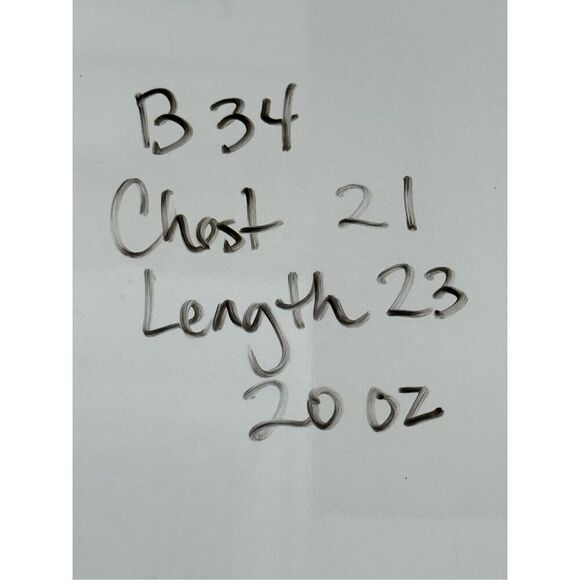 B 34
Chest 21
Length 23
20 oz